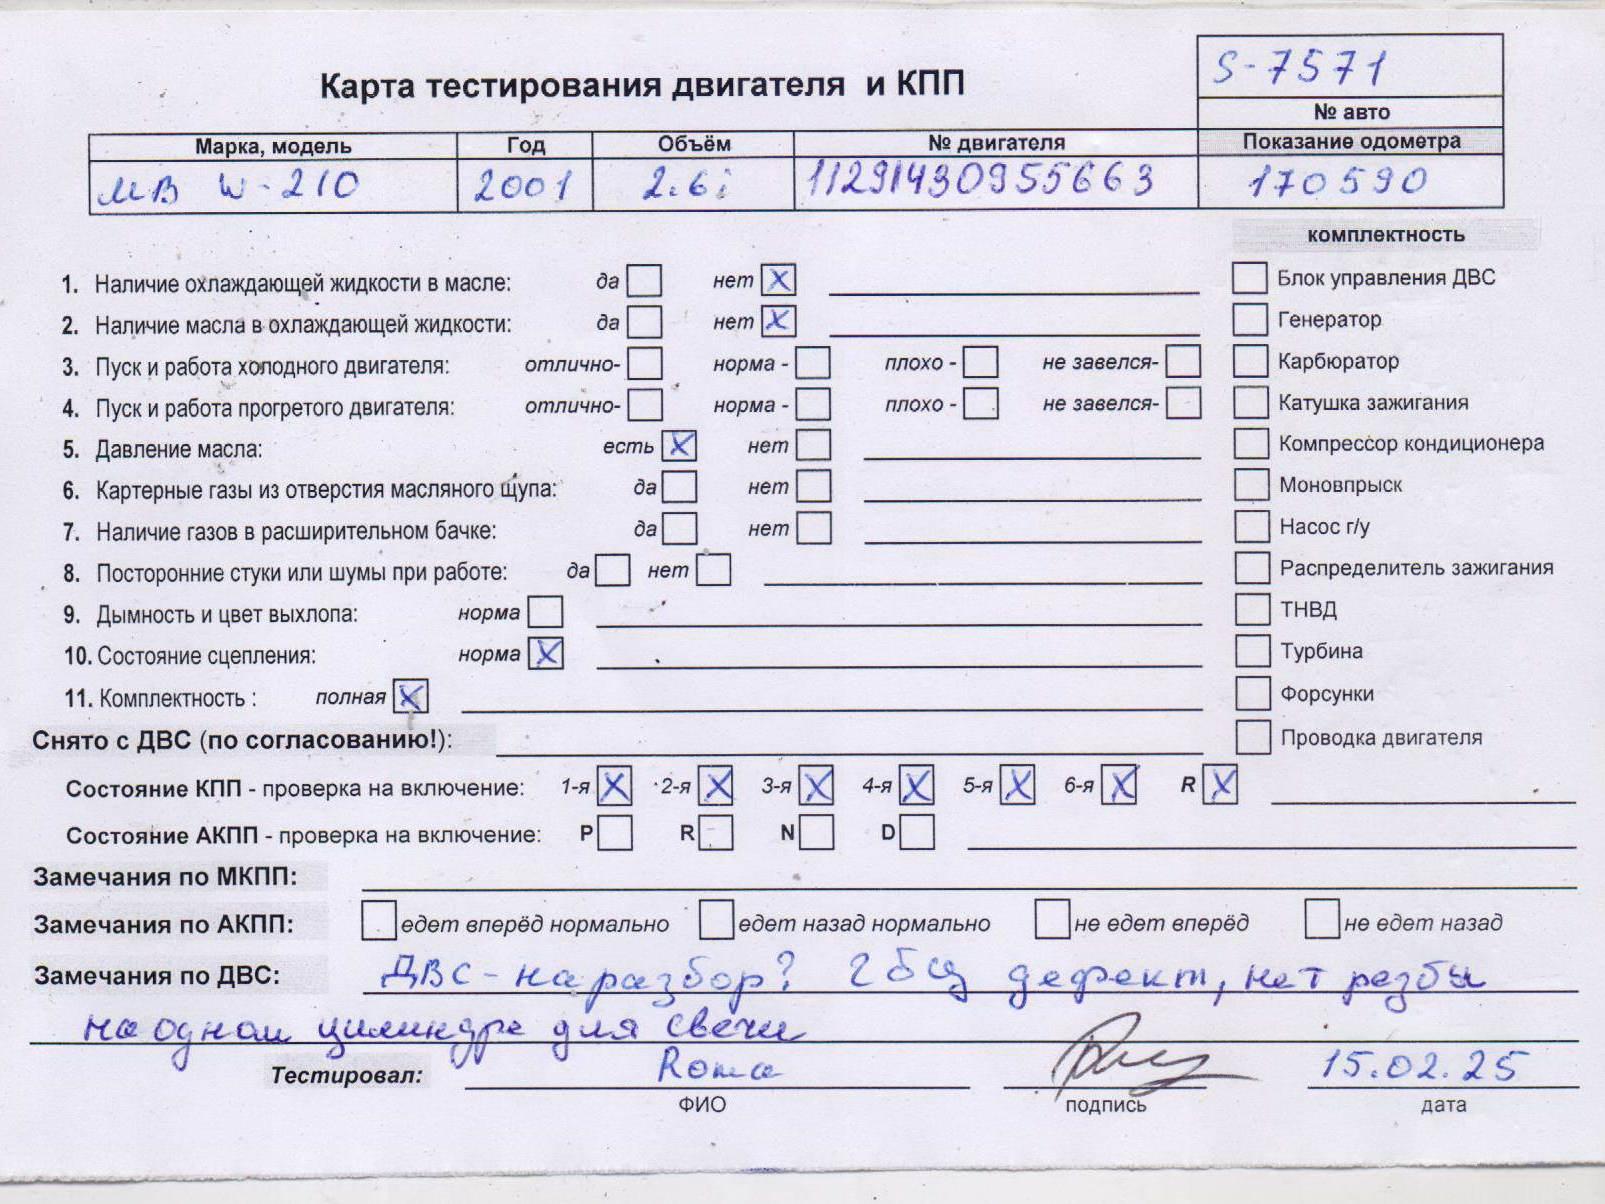 S-7571
Карта тестирования двигателя и КПП
№ авто
Марка, модель Год Объём № двигателя Показание одометра
МВ W-210 2001 2.6i 11291430955663 170590
комплектность
1. Наличие охлаждающей жидкости в масле: да нет X Блок управления ДВС
2. Наличие масла в охлаждающей жидкости: да нет X Генератор
3. Пуск и работа холодного двигателя: отлично- норма - плохо - не завелся- Карбюратор
4. Пуск и работа прогретого двигателя: отлично- норма - плохо - не завелся- Катушка зажигания
5. Давление масла: есть X нет Компрессор кондиционера
6. Картерные газы из отверстия масляного щупа: да нет Моновпрыск
7. Наличие газов в расширительном бачке: да нет Насос г/у
8. Посторонние стуки или шумы при работе: да нет Распределитель зажигания
9. Дымность и цвет выхлопа: норма ТНВД
10. Состояние сцепления: норма X Турбина
11. Комплектность : полная X Форсунки
Снято с ДВС (по согласованию!): Проводка двигателя
Состояние КПП - проверка на включение: 1-я X 2-я X 3-я X 4-я X 5-я X 6-я X R X
Состояние АКПП - проверка на включение: P R N D
Замечания по МКПП:
Замечания по АКПП: едет вперёд нормально едет назад нормально не едет вперёд не едет назад
Замечания по ДВС: ДВС - на разбор? ГБЦ дефект, нет резбы
на одном цилиндре для свечи
Тестировал: Roma 15.02.25
ФИО подпись дата